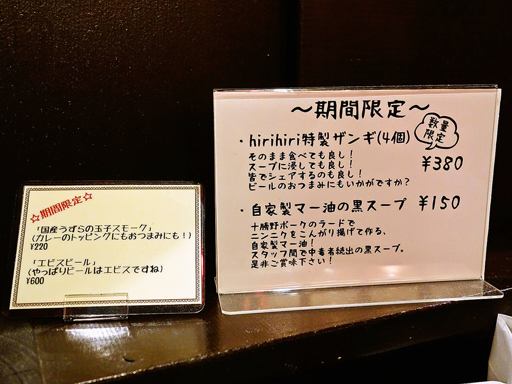 ☆期間限定☆
「国産うずらの玉子スモーク」
(カレーのトッピングにもおつまみにも!)
¥220
「エビスビール」
(やっぱりビールはエビスですね)
¥600
～期間限定～
・hirihiri特製ザンギ(4個)
数量
限定
そのまま食べても良し!
スープに浸しても良し!
皆でシェアするのも良し!
ビールのおつまみにもいかがですか?
¥380
・自家製マー油の黒スープ ¥150
十勝野ポークのラードで
ニンニクをこんがり揚げて作る、
自家製マー油!
スタッフ間で中毒者続出の黒スープ。
是非ご賞味下さい!